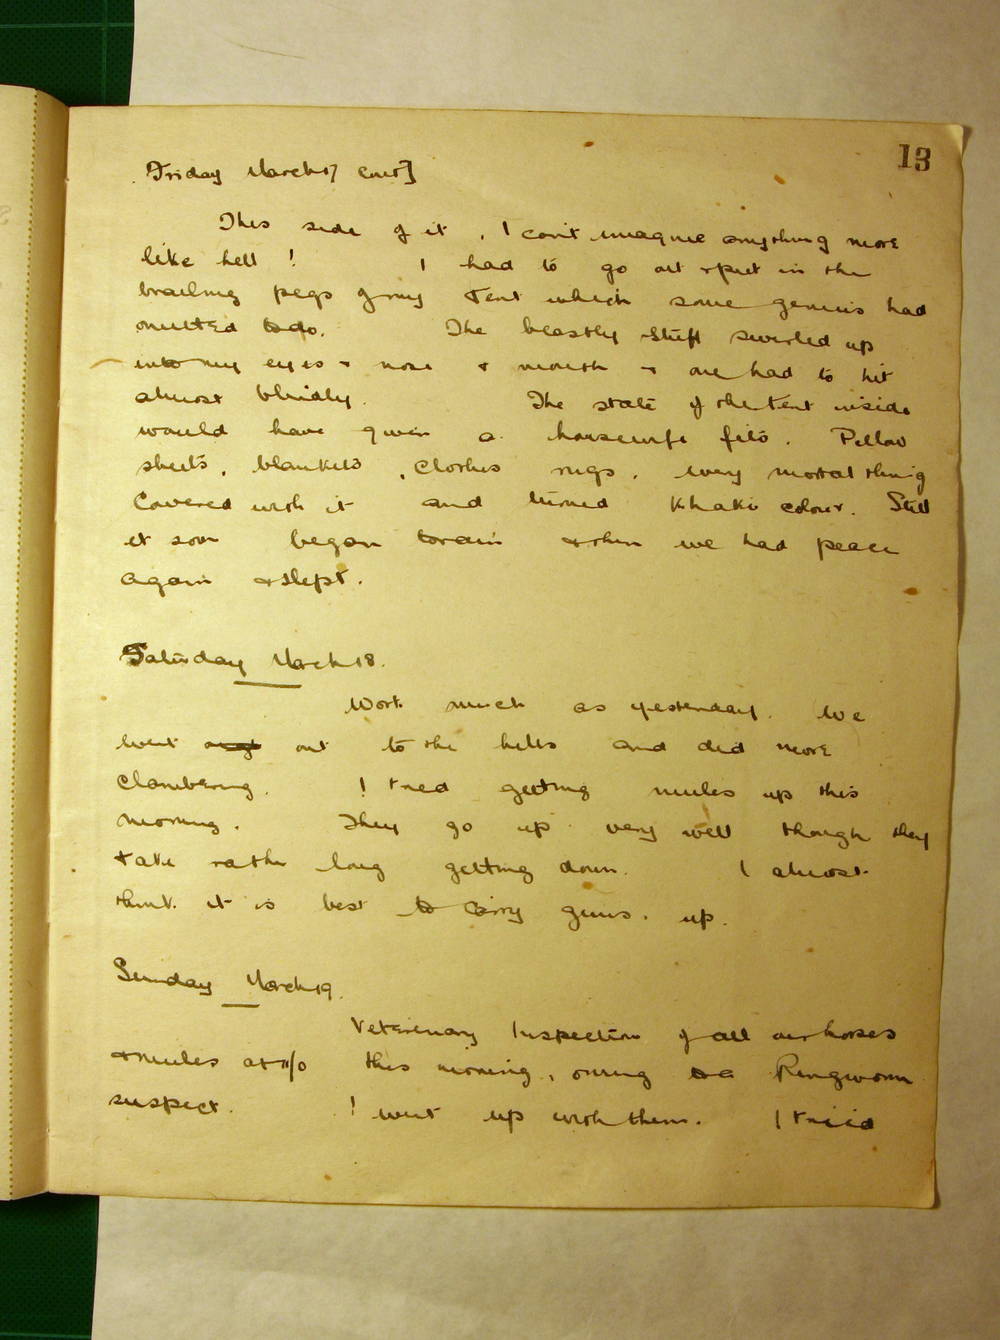 13
Friday March 17 cont]
This side of it, I can't imagine anything more
like hell! I had to go out & put in the
brailing pegs of my tent which some genius had
omitted to do. The beastly stuff swirled up
into my eyes & nose & mouth & one had to hit
almost blindly. The state of the tent inside
would have given a housewife fits. Pillow
sheets, blankets, clothes rugs, every mortal thing
covered with it and turned Khaki colour. Still
it soon began to rain & then we had peace
again & slept.
Saturday March 18.
Work much as yesterday. We
went out to the hills and did more
clambering. I tried getting mules up this
morning. They go up very well though they
take rather long getting down. I almost
think it is best to carry guns. up.
Sunday March 19.
Veterinary Inspection of all our horses
& mules at this morning, owing to a Ringworm
suspect. I went up with them. I tried